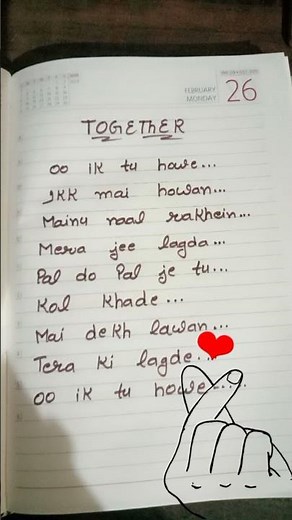 FEBRUARY
MONDAY
26
TOGEThER
oo ik tu howe...
Ikk mai howan...
Mainu naal rakhein...
Merra jee lagda...
Pal do Pal je tu...
Kol khade...
Mai dekh lawan...
Tera ki lagde...
oo ik tu howe....